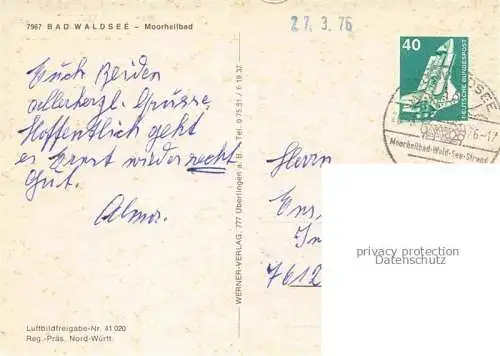 7967 BAD WALDSEE – Moorheilbad
27. 3. 76
40
DEUTSCHE BUNDESPOST
Moorheilbad-Wald-See-Strand
Euch beiden
allerherzl. Grüsse,
Hoffentlich geht
es Ernst wieder recht
Gut.
Alma.
Herrn
Ens
In
7612
privacy protection
Datenschutz
WERNER-VERLAG, 777 Überlingen a. B. Tel. 0 75 51 / 6 19 37
Luftbildfreigabe-Nr. 41 020
Reg.-Präs. Nord-Württ.